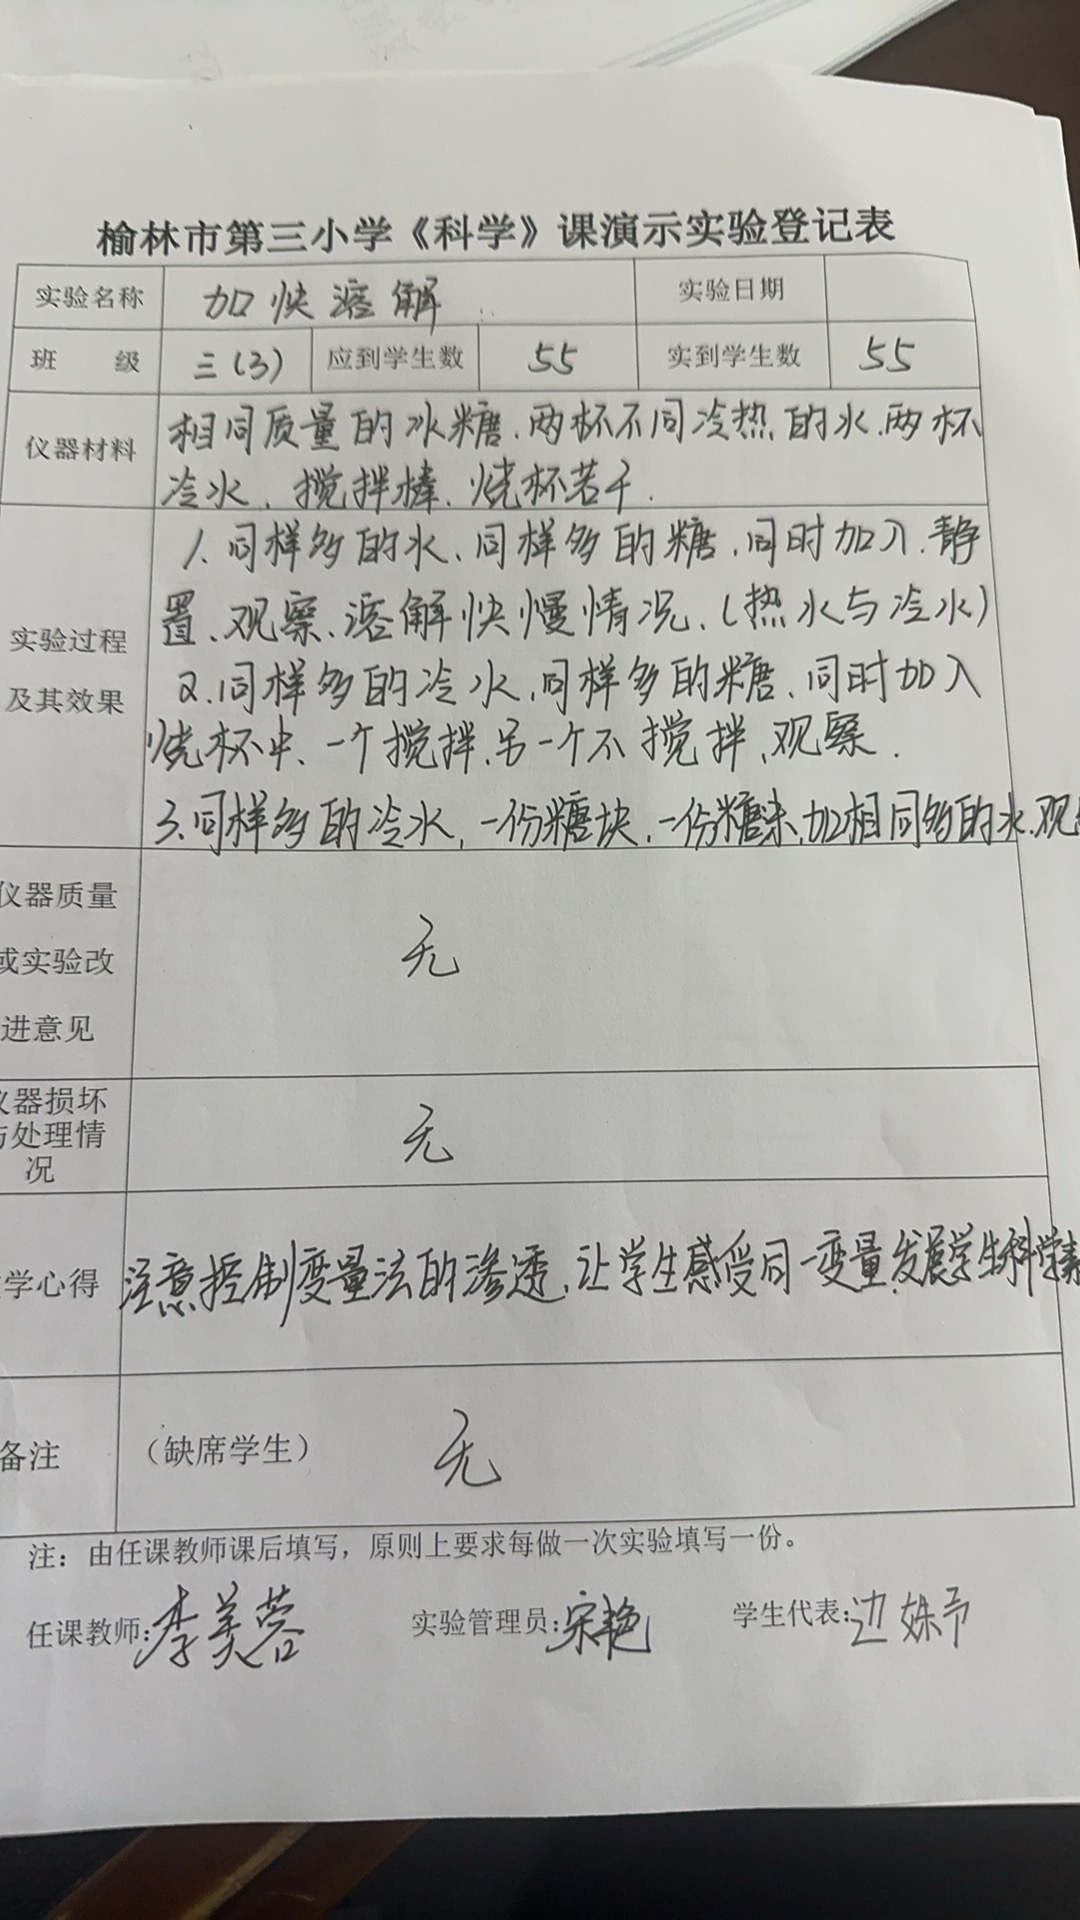 榆林市第三小学《科学》课演示实验登记表
实验名称 加快溶解 实验日期
班 级 三(3) 应到学生数 55 实到学生数 55
仪器材料
相同质量的冰糖、两杯不同冷热的水、两杯
冷水、搅拌棒、烧杯若干.
实验过程
及其效果
1、同样多的水、同样多的糖、同时加入、静
置、观察、溶解快慢情况.(热水与冷水)
2.同样多的冷水,同样多的糖、同时加入
烧杯中、一个搅拌、另一个不搅拌、观察.
3、同样多的冷水,一份糖块、一份糖末,加相同多的水、观
仪器质量
或实验改
进意见
无
仪器损坏
与处理情
况
无
学心得
注意控制变量法的渗透、让学生感受同一变量,发展学生科学素
备注 （缺席学生） 无
注：由任课教师课后填写，原则上要求每做一次实验填写一份。
任课教师:李美蓉 实验管理员:宋艳 学生代表:边姝予